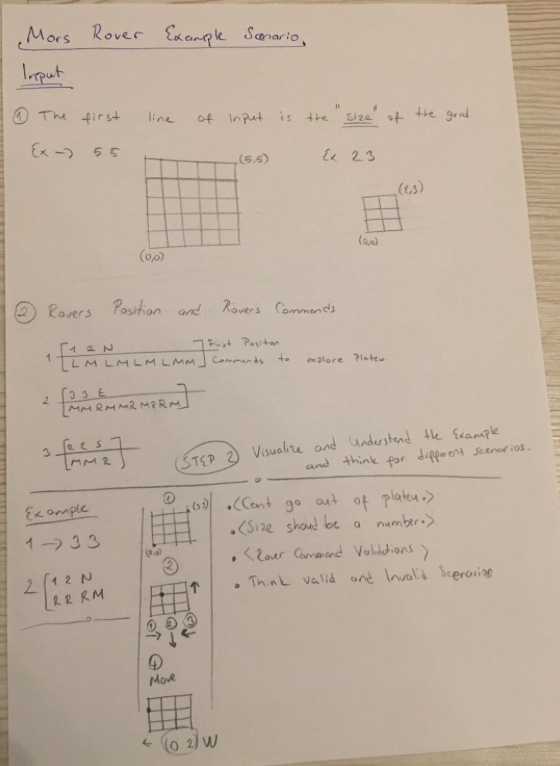 Mars Rover Example Senario
Input
① The first line of input is the "size" of the grid
Ex → 5 5
(5,5)
(0,0)
Ex 2 3
(2,3)
(0,0)
② Rovers Position and Rovers Commands
1 [1 2 N] First Position
[L M L M L M L M M] Commands to explore Plateu.
2 [3 3 E
M M R M M R M R R M]
3 [2 2 S
M M R]
STEP 2 Visualize and Understand the Example
and think for different scenarios.
Example
1 → 3 3
2 [1 2 N
R R R M
①
(3,3)
(0,0)
②
↑
① ② ③
→ ↓ ←
④
Move
← (0 2) W
• <Cant go out of plateu.>
• <Size should be a number.>
• <Rover Command Validations>
• Think valid and Invalid Scenarios